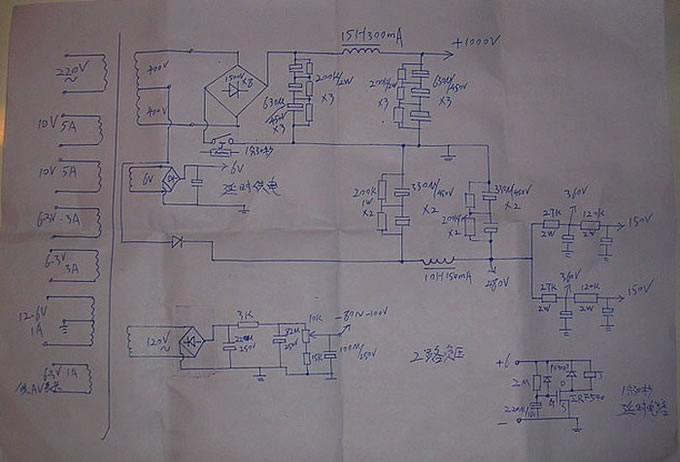 15H300mA
+1000V
220V
~
400V
400V
1500V
×8
630M
/450V
×3
200K/
2W
×3
200K/
2W
×3
630M/
450V
×3
10V 5A
J
1分30秒
10V 5A
6V
6V
延时供电
200K
1W
×2
330M/450V
×2
200K/
×2
330M/450V
×2
6.3V 3A
6.3V
3A
10H150mA
480V
27K
2W
360V
120K
2W
150V
27K
2W
360V
120K
2W
150V
12-6V
1A
6.3V 1A
120V
3K
220M
250V
82M
250V
10K
15K
-80V-100V
100M
/250V
2路负压
+6
2M
220M/
G
D
S
J
IRF540
1分30秒
延时电路
-